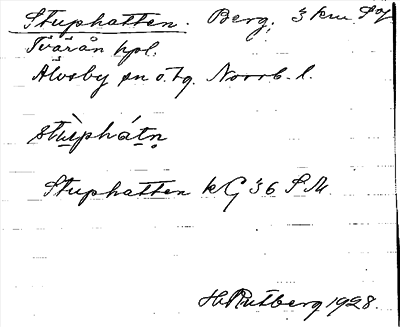 Stuphatten. Berg, 3 km S of
Tvärån hpl.
Älvsby sn o. tg. Norrb. l.
stùphátn
Stuphatten kG 36 S.M.
H. Rutberg 1928.